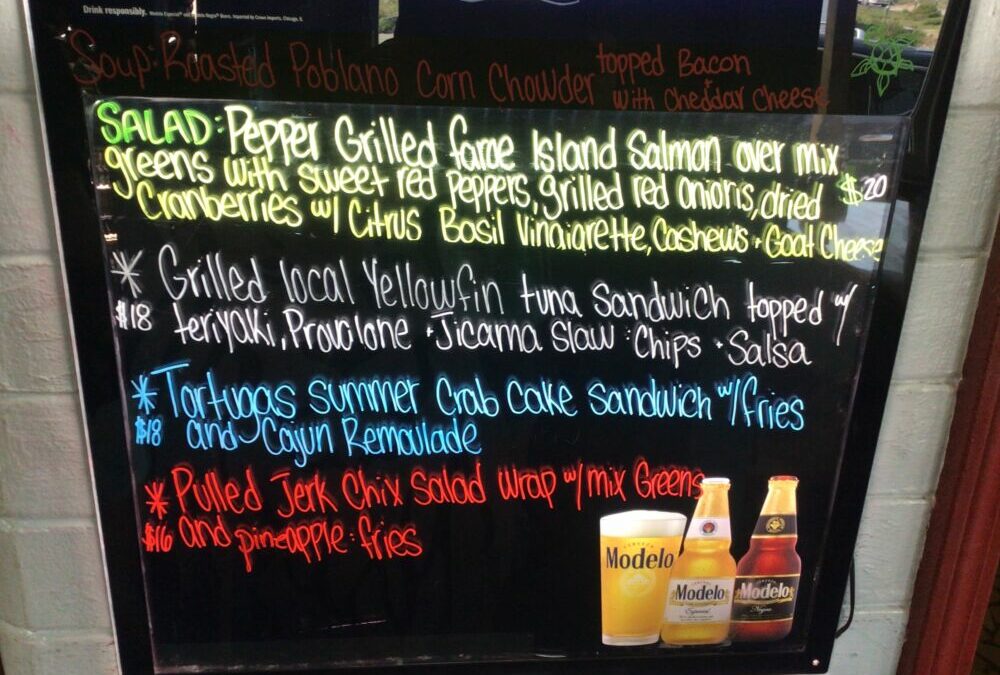 Drink responsibly.
Soup: Roasted Poblano Corn Chowder topped Bacon +
with Cheddar Cheese
SALAD: Pepper Grilled faroe Island Salmon over mix
greens with sweet red peppers, grilled red onions, dried $20
Cranberries w/ Citrus Basil Vinaigrette, Cashews + Goat Cheese
* Grilled local Yellowfin tuna Sandwich topped w/
$18 teriyaki, Provolone + Jicama Slaw : Chips + Salsa
* Tortugas summer Crab Cake Sandwich w/ fries
$18 and Cajun Remoulade
* Pulled Jerk Chix Salad Wrap w/ mix Greens
$16 and pineapple : fries
Modelo
Modelo
Especial
Modelo
Negra